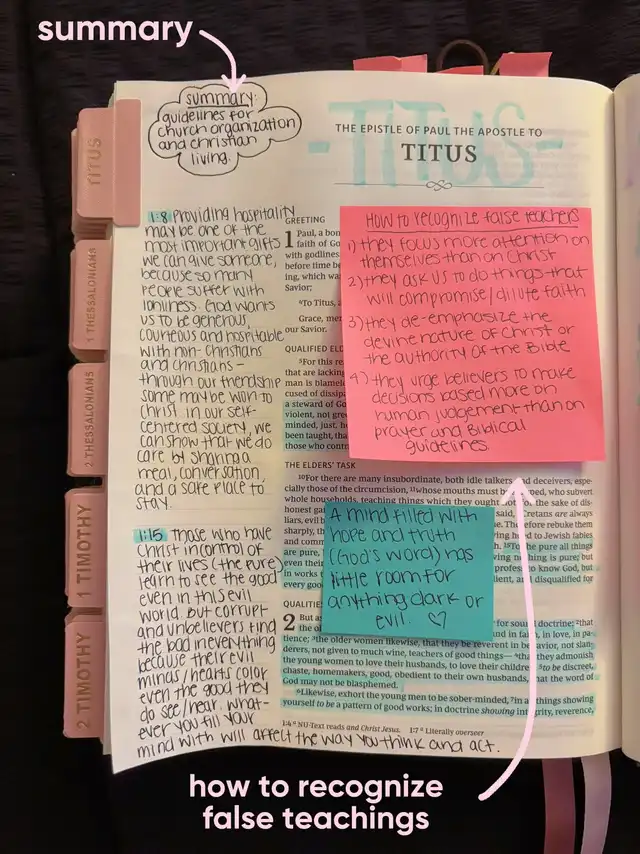 summary
summary:
guidelines for
church organization
and christian
living.
TITUS
1 THESSALONIANS
2 THESSALONIANS
1 TIMOTHY
2 TIMOTHY
-TITUS-
THE EPISTLE OF PAUL THE APOSTLE TO
TITUS
1:8 Providing hospitality
may be one of the
most important gifts
we can give someone,
because so many
people suffer with
lonliness. God wants
us to be generous,
courteous and hospitable
with non-Christians
and christians –
through our friendship
some may be won to
Christ in our self-
centered society, we
can show that we do
care by sharing a
meal, conversation,
and a safe place to
stay.
1:15 Those who have
Christ in control of
their lives (the pure)
learn to see the good
even in this evil
world. But corrupt
and unbelievers find
the bad in everything
because their evil
minds/hearts color
even the good they
do see/hear. What-
ever you fill your
mind with will affect the way you think and act.
GREETING
1 Paul, a bon
faith of Go
with godlines
before time be
ing, which wa
Savior;
To Titus, a
Grace, mer
our Savior.
QUALIFIED ELD
5For this re
that are lacking
man is blamele
cused of dissipa
a steward of Go
violent, not gre
minded, just, h
been taught, tha
those who contr
How to recognize false teachers
1) they focus more attention on
themselves than on Christ
2) they ask us to do things that
will compromise/dilute faith
3) they de-emphasize the
devine nature of Christ or
the authority of the Bible
4) they urge believers to make
decisions based more on
human judgement than on
prayer and Biblical
guidelines.
THE ELDERS' TASK
10For there are many insubordinate, both idle talkers and deceivers, espe-
cially those of the circumcision, 11whose mouths must be stopped, who subvert
whole households, teaching things which they ought not, the sake of dis-
honest ga said, Cretans are always
liars, evil b Therefore rebuke them
sharply, th ing heed to Jewish fables
and comm 15To the pure all things
are pure, ving nothing is pure; but
even their profess to know God, but
in works dient, and disqualified for
every goo
A mind filled with
hope and truth
(God's word) has
little room for
anything dark or
evil. ♡
QUALITIES
2 But as for sound doctrine: 2that
the ol und in faith, in love, in pa-
tience; 3the older women likewise, that they be reverent in behavior, not slan-
derers, not given to much wine, teachers of good things— 4that they admonish
the young women to love their husbands, to love their children, 5to be discreet,
chaste, homemakers, good, obedient to their own husbands, that the word of
God may not be blasphemed.
6Likewise, exhort the young men to be sober-minded, 7in all things showing
yourself to be a pattern of good works; in doctrine showing integrity, reverence,
1:4 a NU-Text reads and Christ Jesus. 1:7 a Literally overseer
how to recognize
false teachings